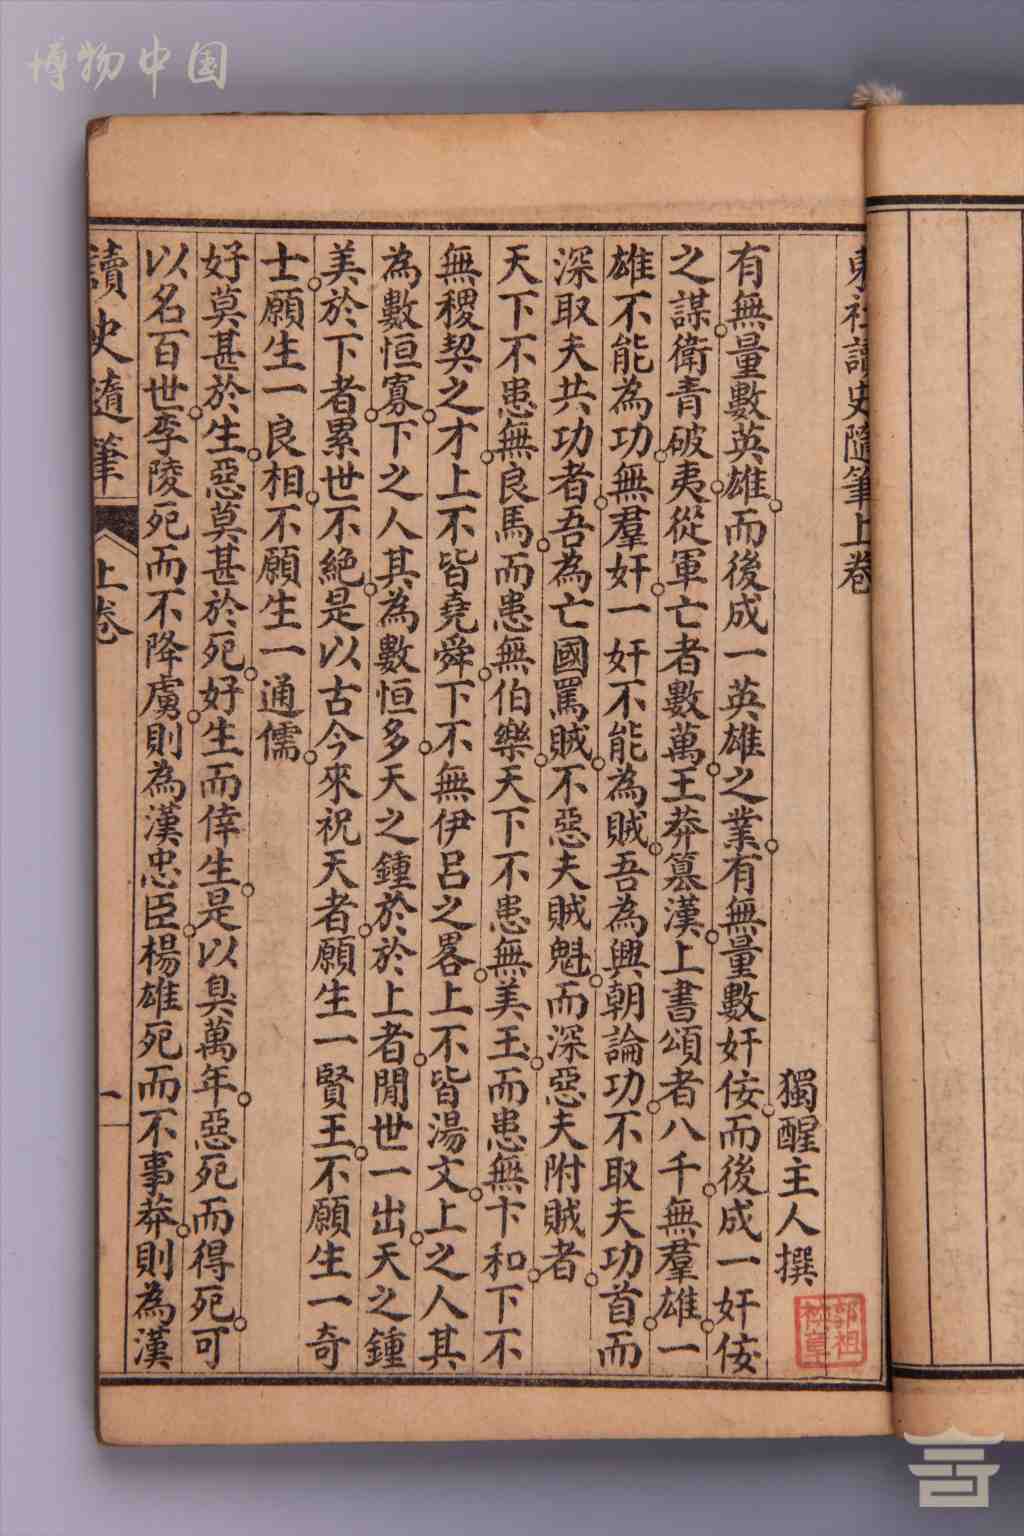 博物中国
東社讀史隨筆上卷
獨醒主人撰
有無量數英雄而後成一英雄之業有無量數奸佞而後成一奸佞
之謀衛青破夷從軍亡者數萬王莽篡漢上書頌者八千無羣雄一
雄不能為功無羣奸一奸不能為賊吾為興朝論功不取夫功首而
深取夫共功者吾為亡國罵賊不惡夫賊魁而深惡夫附賊者
天下不患無良馬而患無伯樂天下不患無美玉而患無卞和下不
無稷契之才上不皆堯舜下不無伊呂之畧上不皆湯文上之人其
為數恒寡下之人其為數恒多天之鍾於於上者閒世一出天之鍾
美於下者累世不絕是以古今來祝天者願生一賢王不願生一奇
士願生一良相不願生一通儒
好莫甚於生惡莫甚於死好生而倖生是以臭萬年惡死而得死可
以名百世李陵死而不降虜則為漢忠臣楊雄死而不事莽則為漢
讀史隨筆
上卷
一